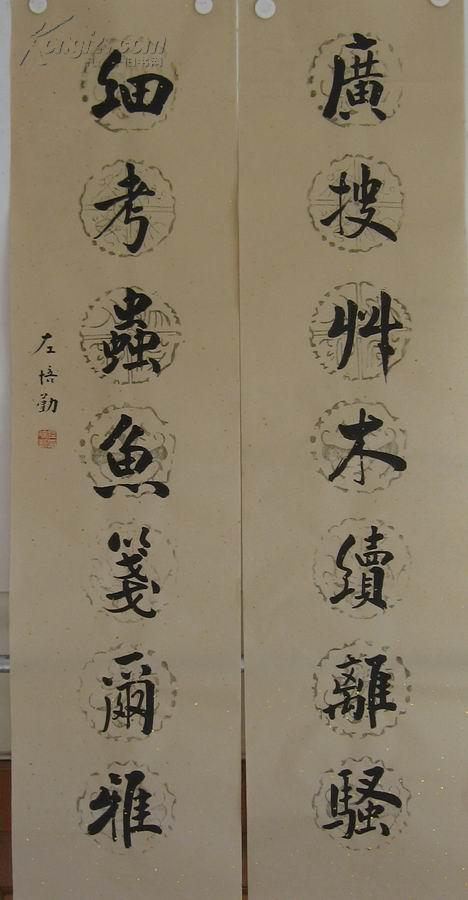 廣搜艸木續離騷
細考蟲魚箋爾雅
左培勤
Kongfz.com